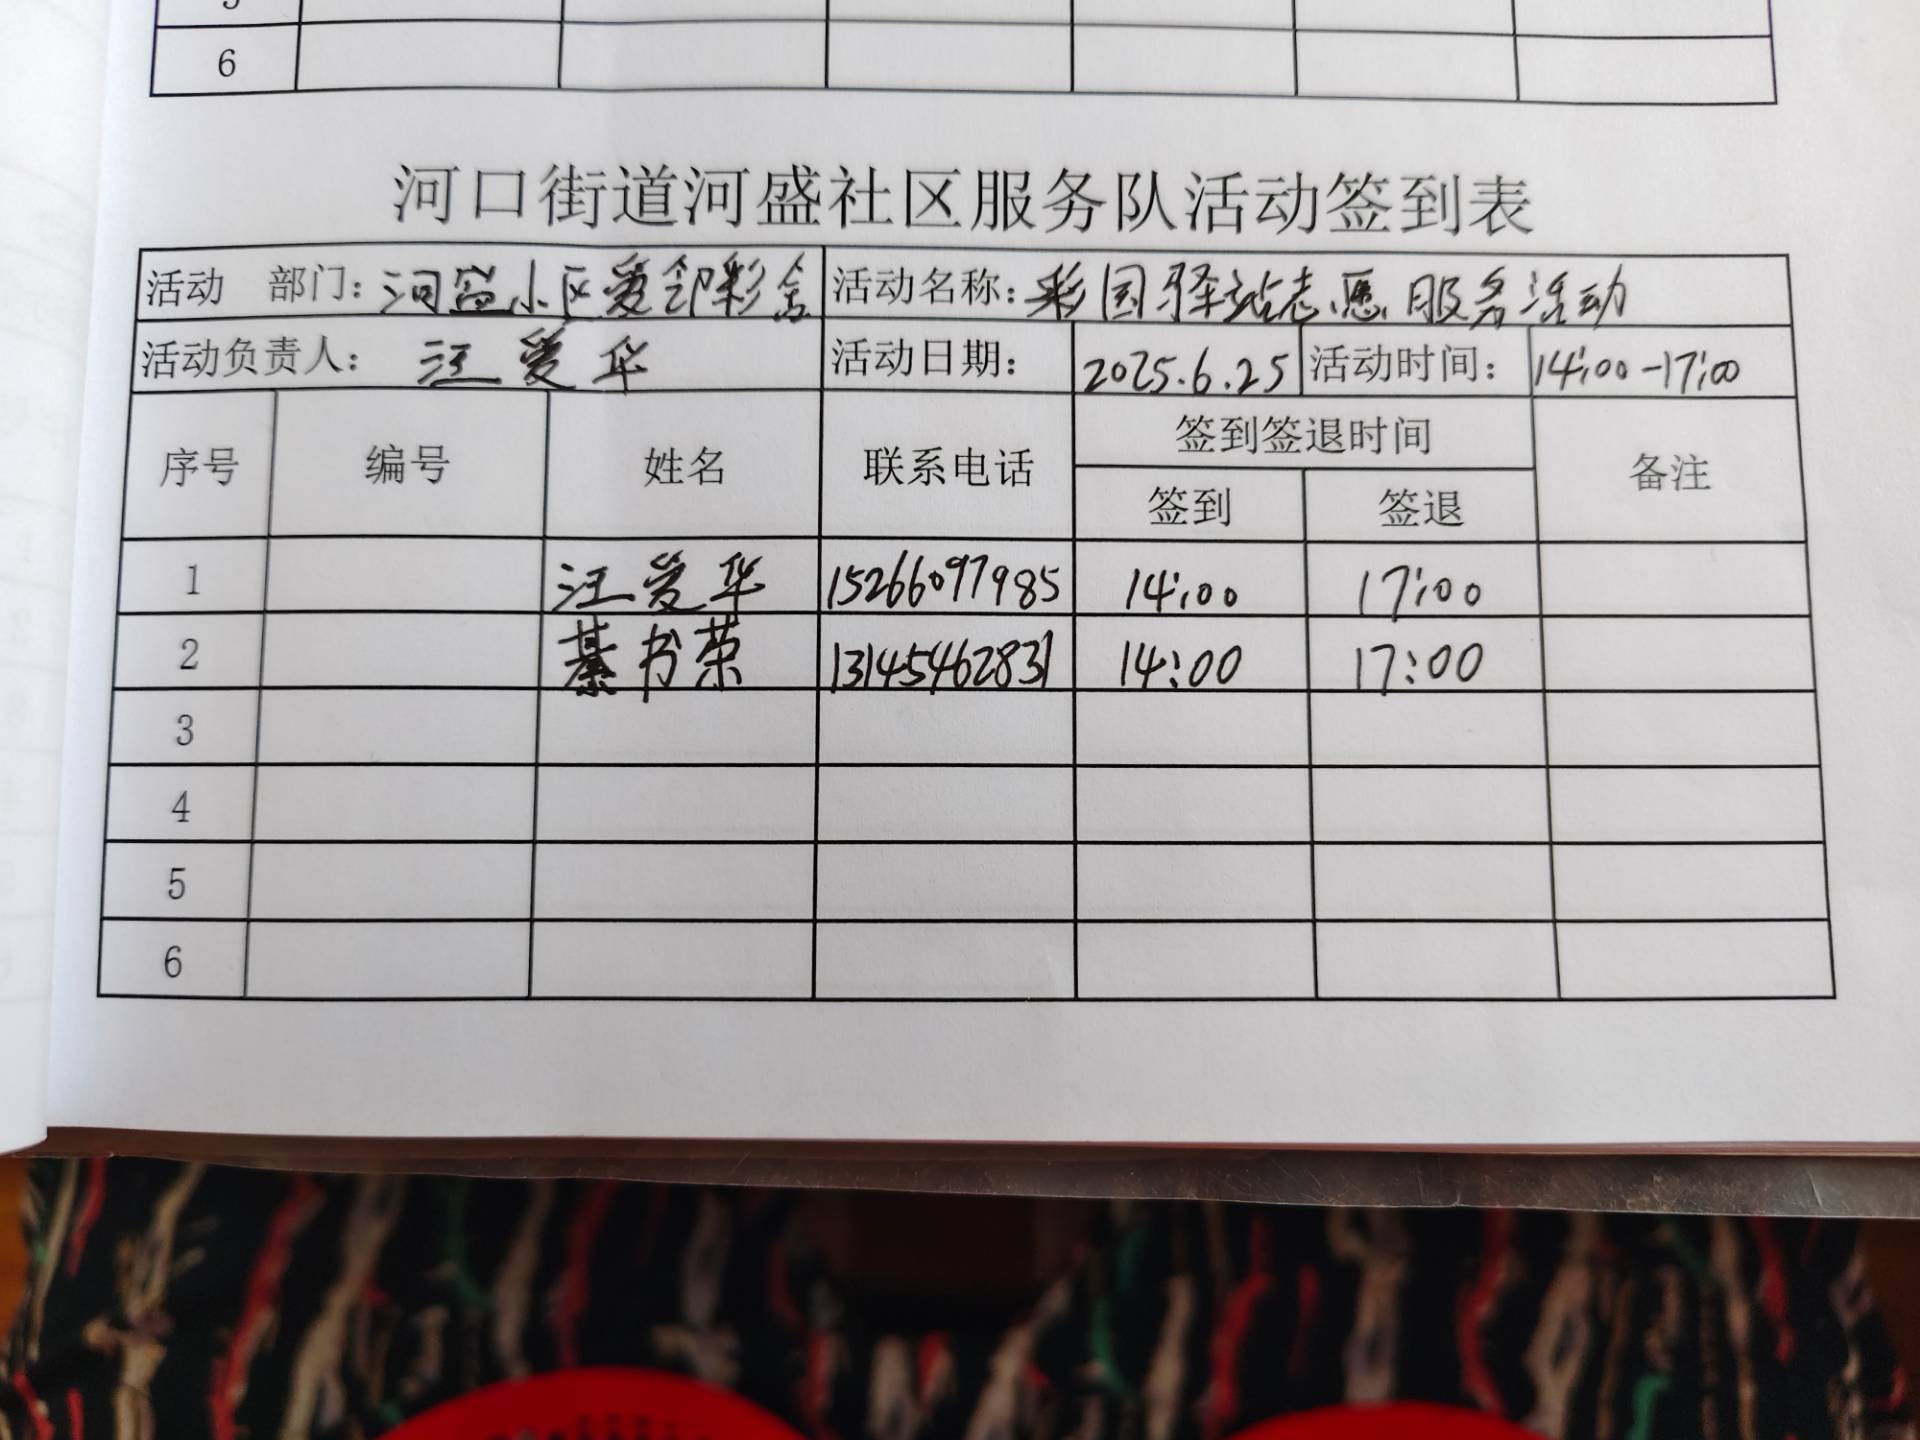 6
河口街道河盛社区服务队活动签到表
活动 部门：河盛小区爱邻彩舍 活动名称：彩国驿站志愿服务活动
活动负责人： 汪爱华 活动日期： 2025.6.25 活动时间： 14:00-17:00
序号 编号 姓名 联系电话 签到签退时间 备注
签到 签退
1 汪爱华 15266097985 14:00 17:00
2 綦书荣 13145462831 14:00 17:00
3
4
5
6